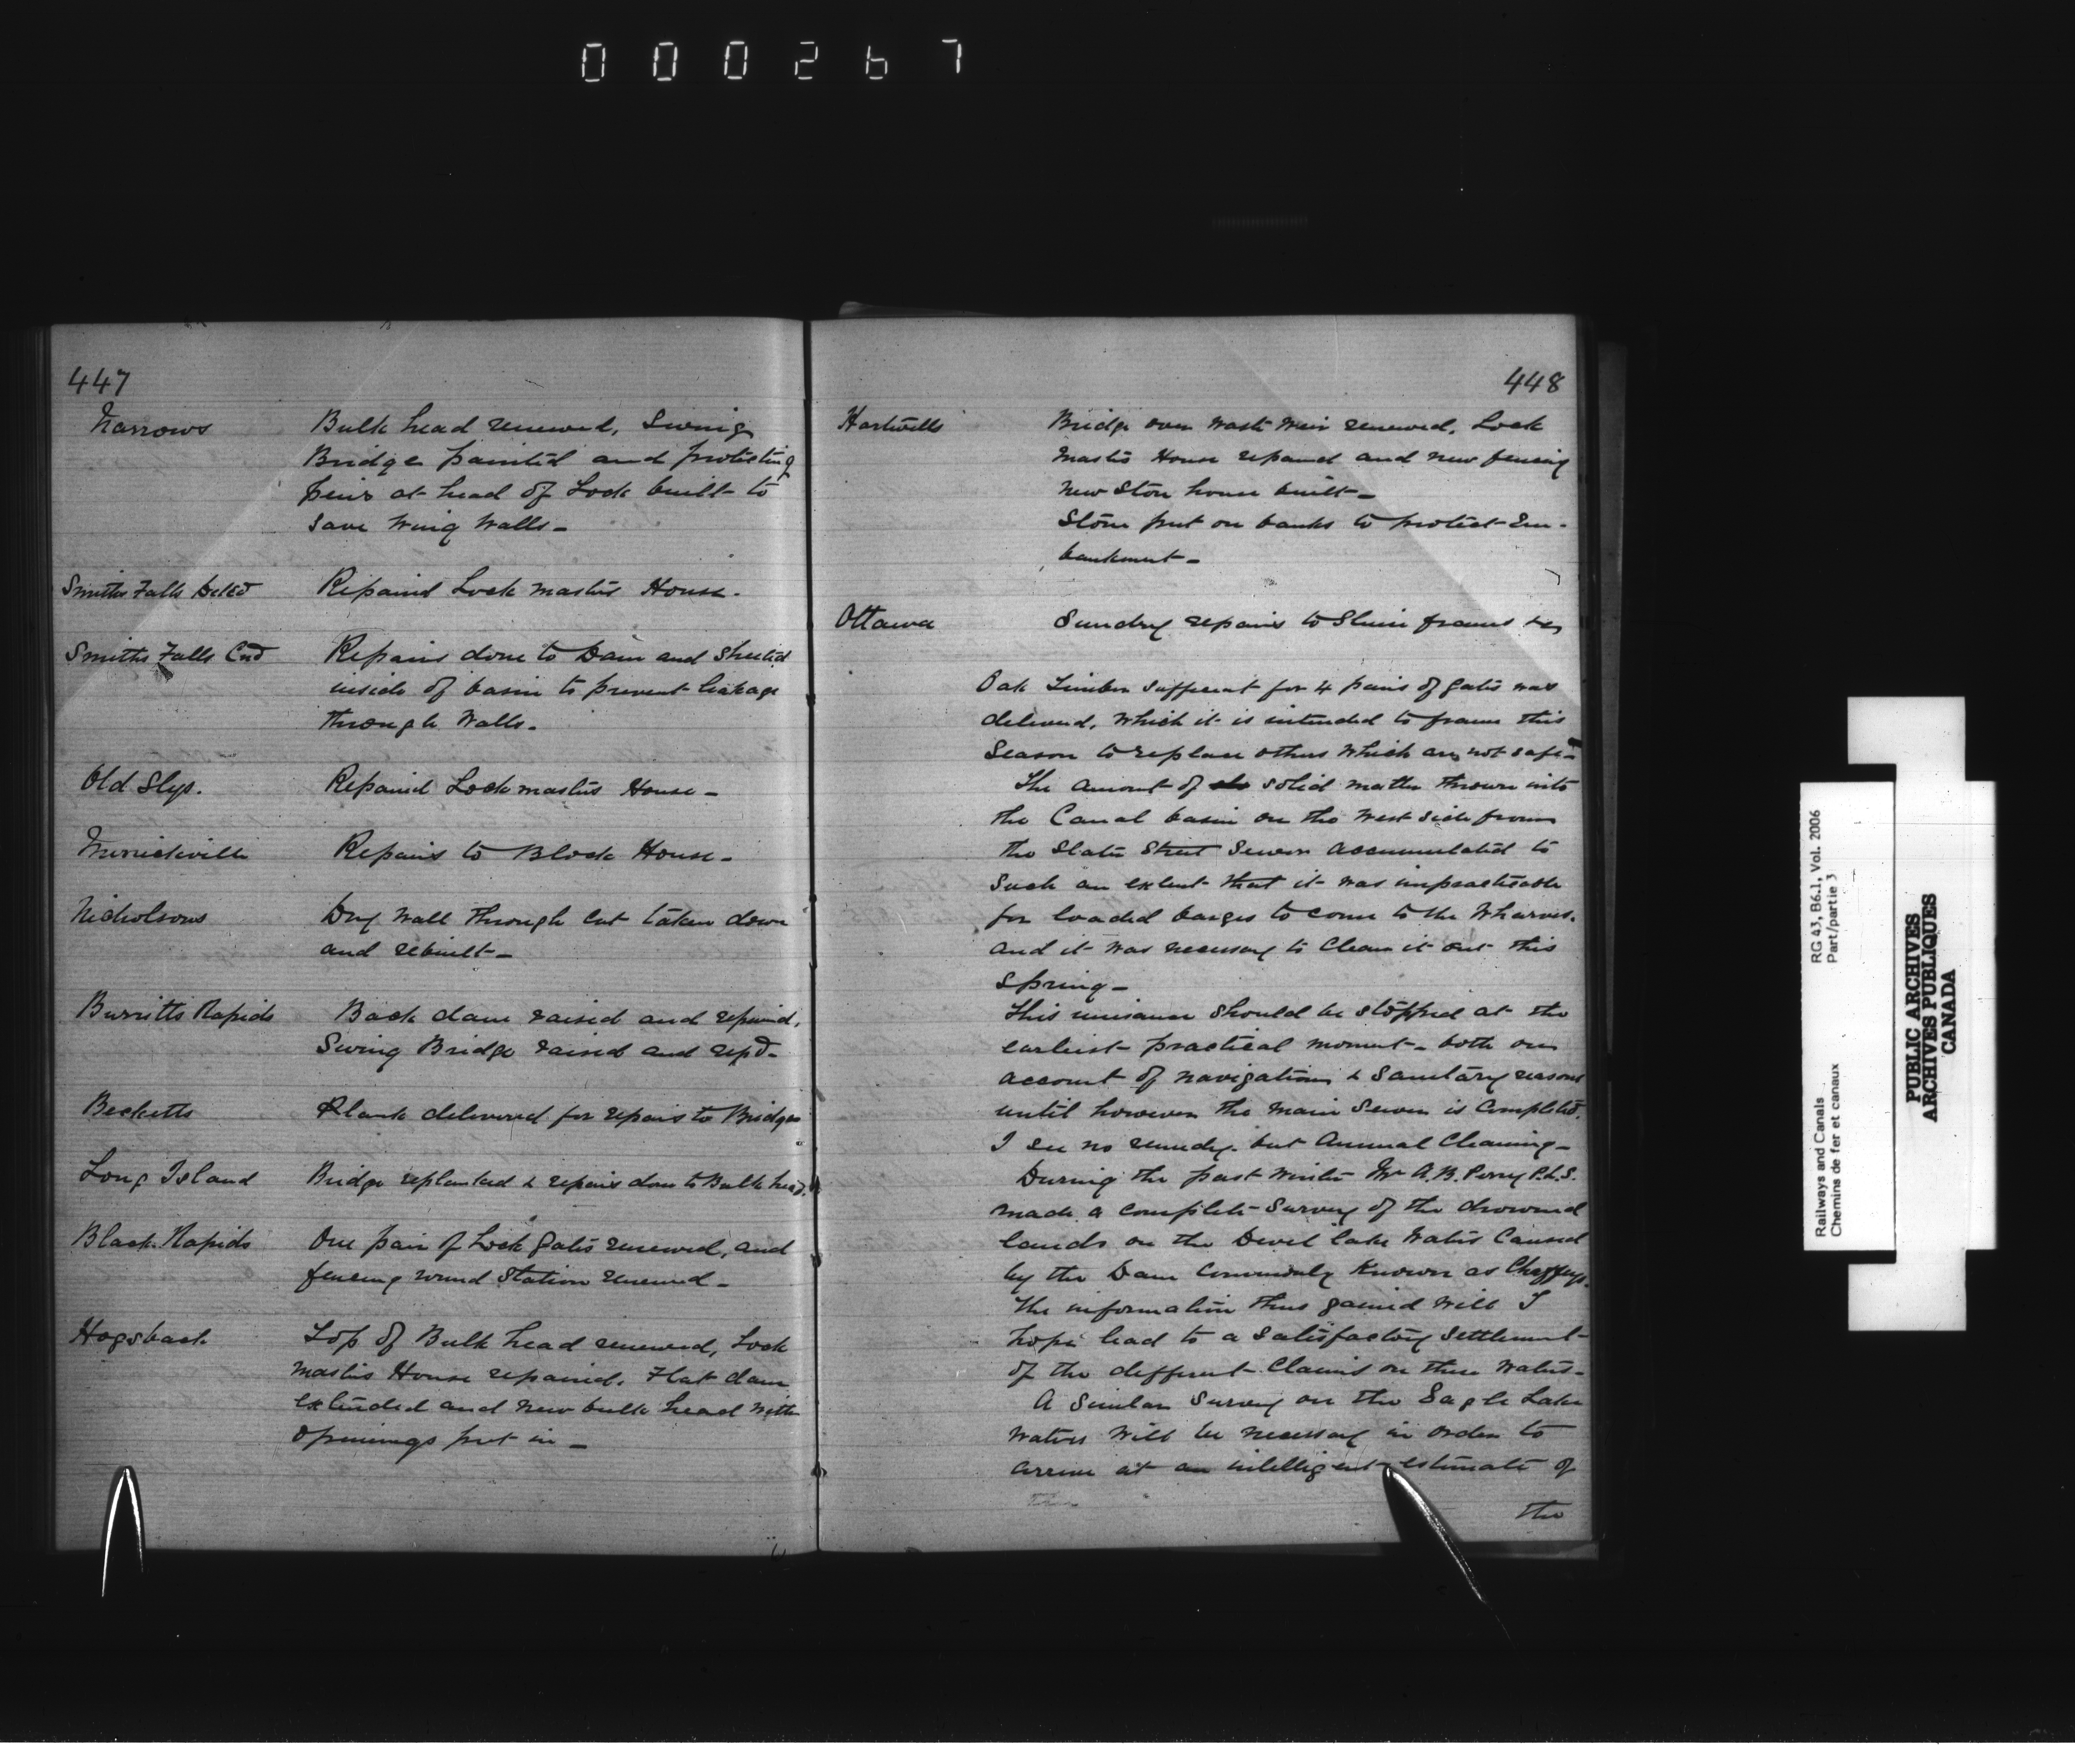 000267
447
Narrows Bulk head renewed, Swing
Bridge painted and protecting
piers at head of Lock built to
save Wing Walls -
Smiths Falls Detcd Repaired Lock masters House.
Smiths Falls Cnd Repairs done to Dam and sheeted
inside of basin to prevent leakage
through Walls.
Old Slys. Repaired Lock masters House -
Merrickville Repairs to Block House -
Nicholsons Dry Wall through Cut taken down
and rebuilt -
Burritts Rapids Back dam raised and repaired,
Swing Bridge raised and repd -
Becketts Plank delivered for repairs to Bridge
Long Island Bridge replanked & repairs done to Bulk head.
Black Rapids One pair of Lock Gates renewed, and
fencing round Station renewed -
Hogsback Top of Bulk head renewed, Lock
masters House repaired. Flat dam
extended and new bulk head with
openings put in -
448
Hartwells Bridge over waste Weir renewed, Lock
masters House repaired and new fencing
New Store house built -
Stone put on banks to protect Em-
bankment -
Ottawa Sundry repairs to Sluice frames &c
Oak Timber sufficient for 4 pairs of gates was
delivered, which it is intended to frame this
Season to replace others which are not safe -
The amount of solid matter thrown into
the Canal basin on the West side from
the Slater Street Sewer accumulated to
such an extent that it was impracticable
for loaded barges to come to the Wharves.
and it was necessary to Clean it out this
Spring -
This nuisance should be stopped at the
earliest practical moment - both on
account of navigation & Sanitary reasons
until however the main Sewer is Completed.
I see no remedy but Annual Cleaning -
During the past winter Mr A. B. Perry P.L.S.
made a complete Survey of the drowned
lands on the Devil lake Waters Caused
by the Dam Commonly Known as Chaffeys.
The information thus gained will I
hope lead to a satisfactory settlement
of the different Claims on these Waters -
A Similar Survey on the Eagle Lake
Waters will be necessary in order to
arrive at an intelligent estimate of
the
RG 43, B6.1, Vol. 2006
Part/partie 3
Railways and Canals
Chemins de fer et canaux
PUBLIC ARCHIVES
ARCHIVES PUBLIQUES
CANADA